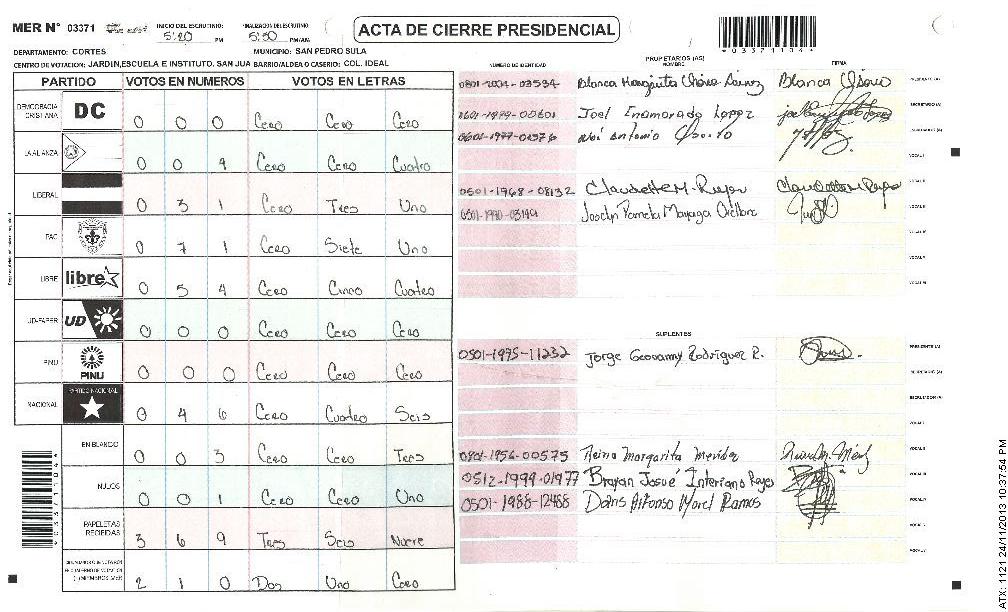 MER N° 03371 INICIO DEL ESCRUTINIO: 5:20 PM FINALIZACION DEL ESCRUTINIO: 5:50 PM/AM
ACTA DE CIERRE PRESIDENCIAL
*033711104*
DEPARTAMENTO: CORTES MUNICIPIO: SAN PEDRO SULA
CENTRO DE VOTACION: JARDIN,ESCUELA E INSTITUTO. SAN JUA BARRIO/ALDEA O CASERIO: COL. IDEAL
PARTIDO VOTOS EN NUMEROS VOTOS EN LETRAS
DEMOCRACIA CRISTIANA DC 0 0 0 Cero Cero Cero
LA ALIANZA 0 0 4 Cero Cero Cuatro
LIBERAL 0 3 1 Cero Tres Uno
PAC 0 7 1 Cero Siete Uno
LIBRE libre 0 5 4 Cero Cinco Cuatro
UD-FAPER UD 0 0 0 Cero Cero Cero
PINU PINU 0 0 0 Cero Cero Cero
NACIONAL PARTIDO NACIONAL 0 4 6 Cero Cuatro Seis
EN BLANCO 0 0 3 Cero Cero Tres
NULOS 0 0 1 Cero Cero Uno
PAPELETAS RECIBIDAS 3 6 9 Tres Seis Nueve
2 1 0 Dos Uno Cero
PROPIETARIOS (AS)
NUMERO DE IDENTIDAD NOMBRE FIRMA
Blanca Margarita PRESIDENTE (A)
Joel Enamorado Lopez SECRETARIO (A)
Antonio ESCRUTADOR (A)
VOCAL I
0501-1968-08132 Claudette M. Reyes VOCAL II
Joselyn Pamela Mayaga Orellana VOCAL III
VOCAL IV
VOCAL V
VOCAL VI
SUPLENTES
0501-1975-11232 Jorge Geovanny Rodriguez R. PRESIDENTE (A)
SECRETARIO (A)
ESCRUTADOR (A)
VOCAL I
0801-1956-00575 Reina Margarita Mendez VOCAL II
0512-1999-01977 Brayan Josué Interiano Reyes VOCAL III
0501-1988-12488 Danis Alfonso Morel Ramos VOCAL IV
VOCAL V
VOCAL VI
*033711104*
ATX: 1121 24/11/2013 10:37:54 PM